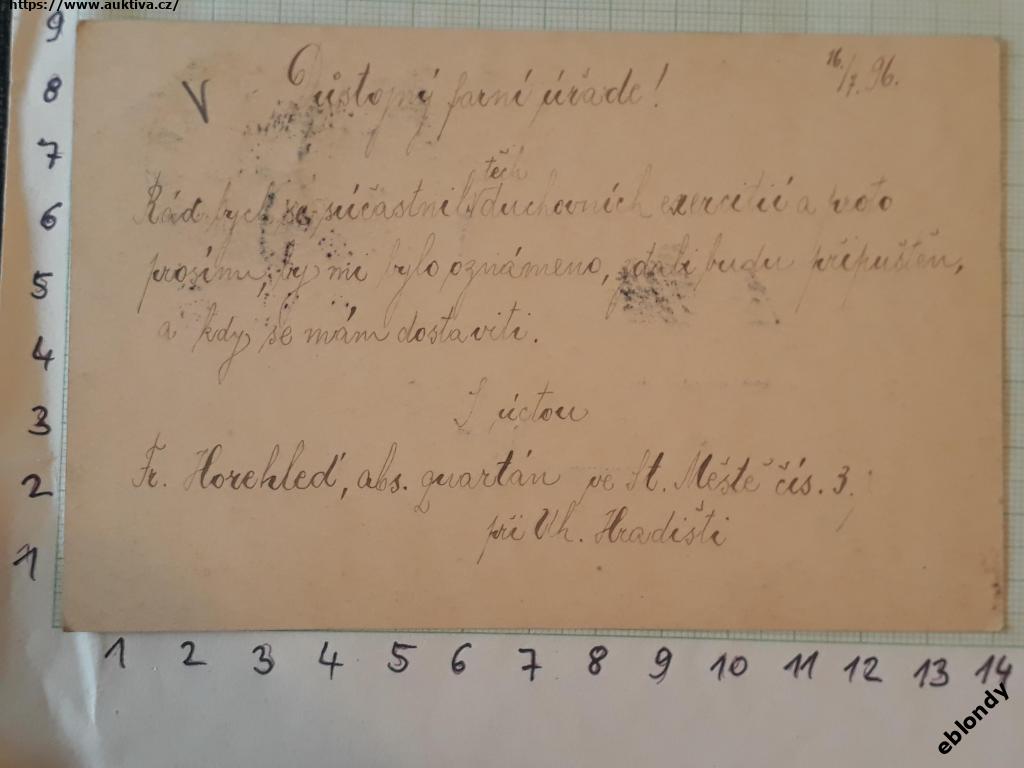 https://www.auktiva.cz/
16/7. 96.
V
Důstojný farní úřade!
těch
Rád bych se súčastnil duchovních exercitií a proto
prosím, by mi bylo oznámeno, zdali budu připuštěn,
a kdy se mám dostaviti.
S úctou
Fr. Horehleď, abs. quartán ve St. Městě čís. 3.
při Uh. Hradišti
9
8
7
6
5
4
3
2
1
1 2 3 4 5 6 7 8 9 10 11 12 13 14
eblondy